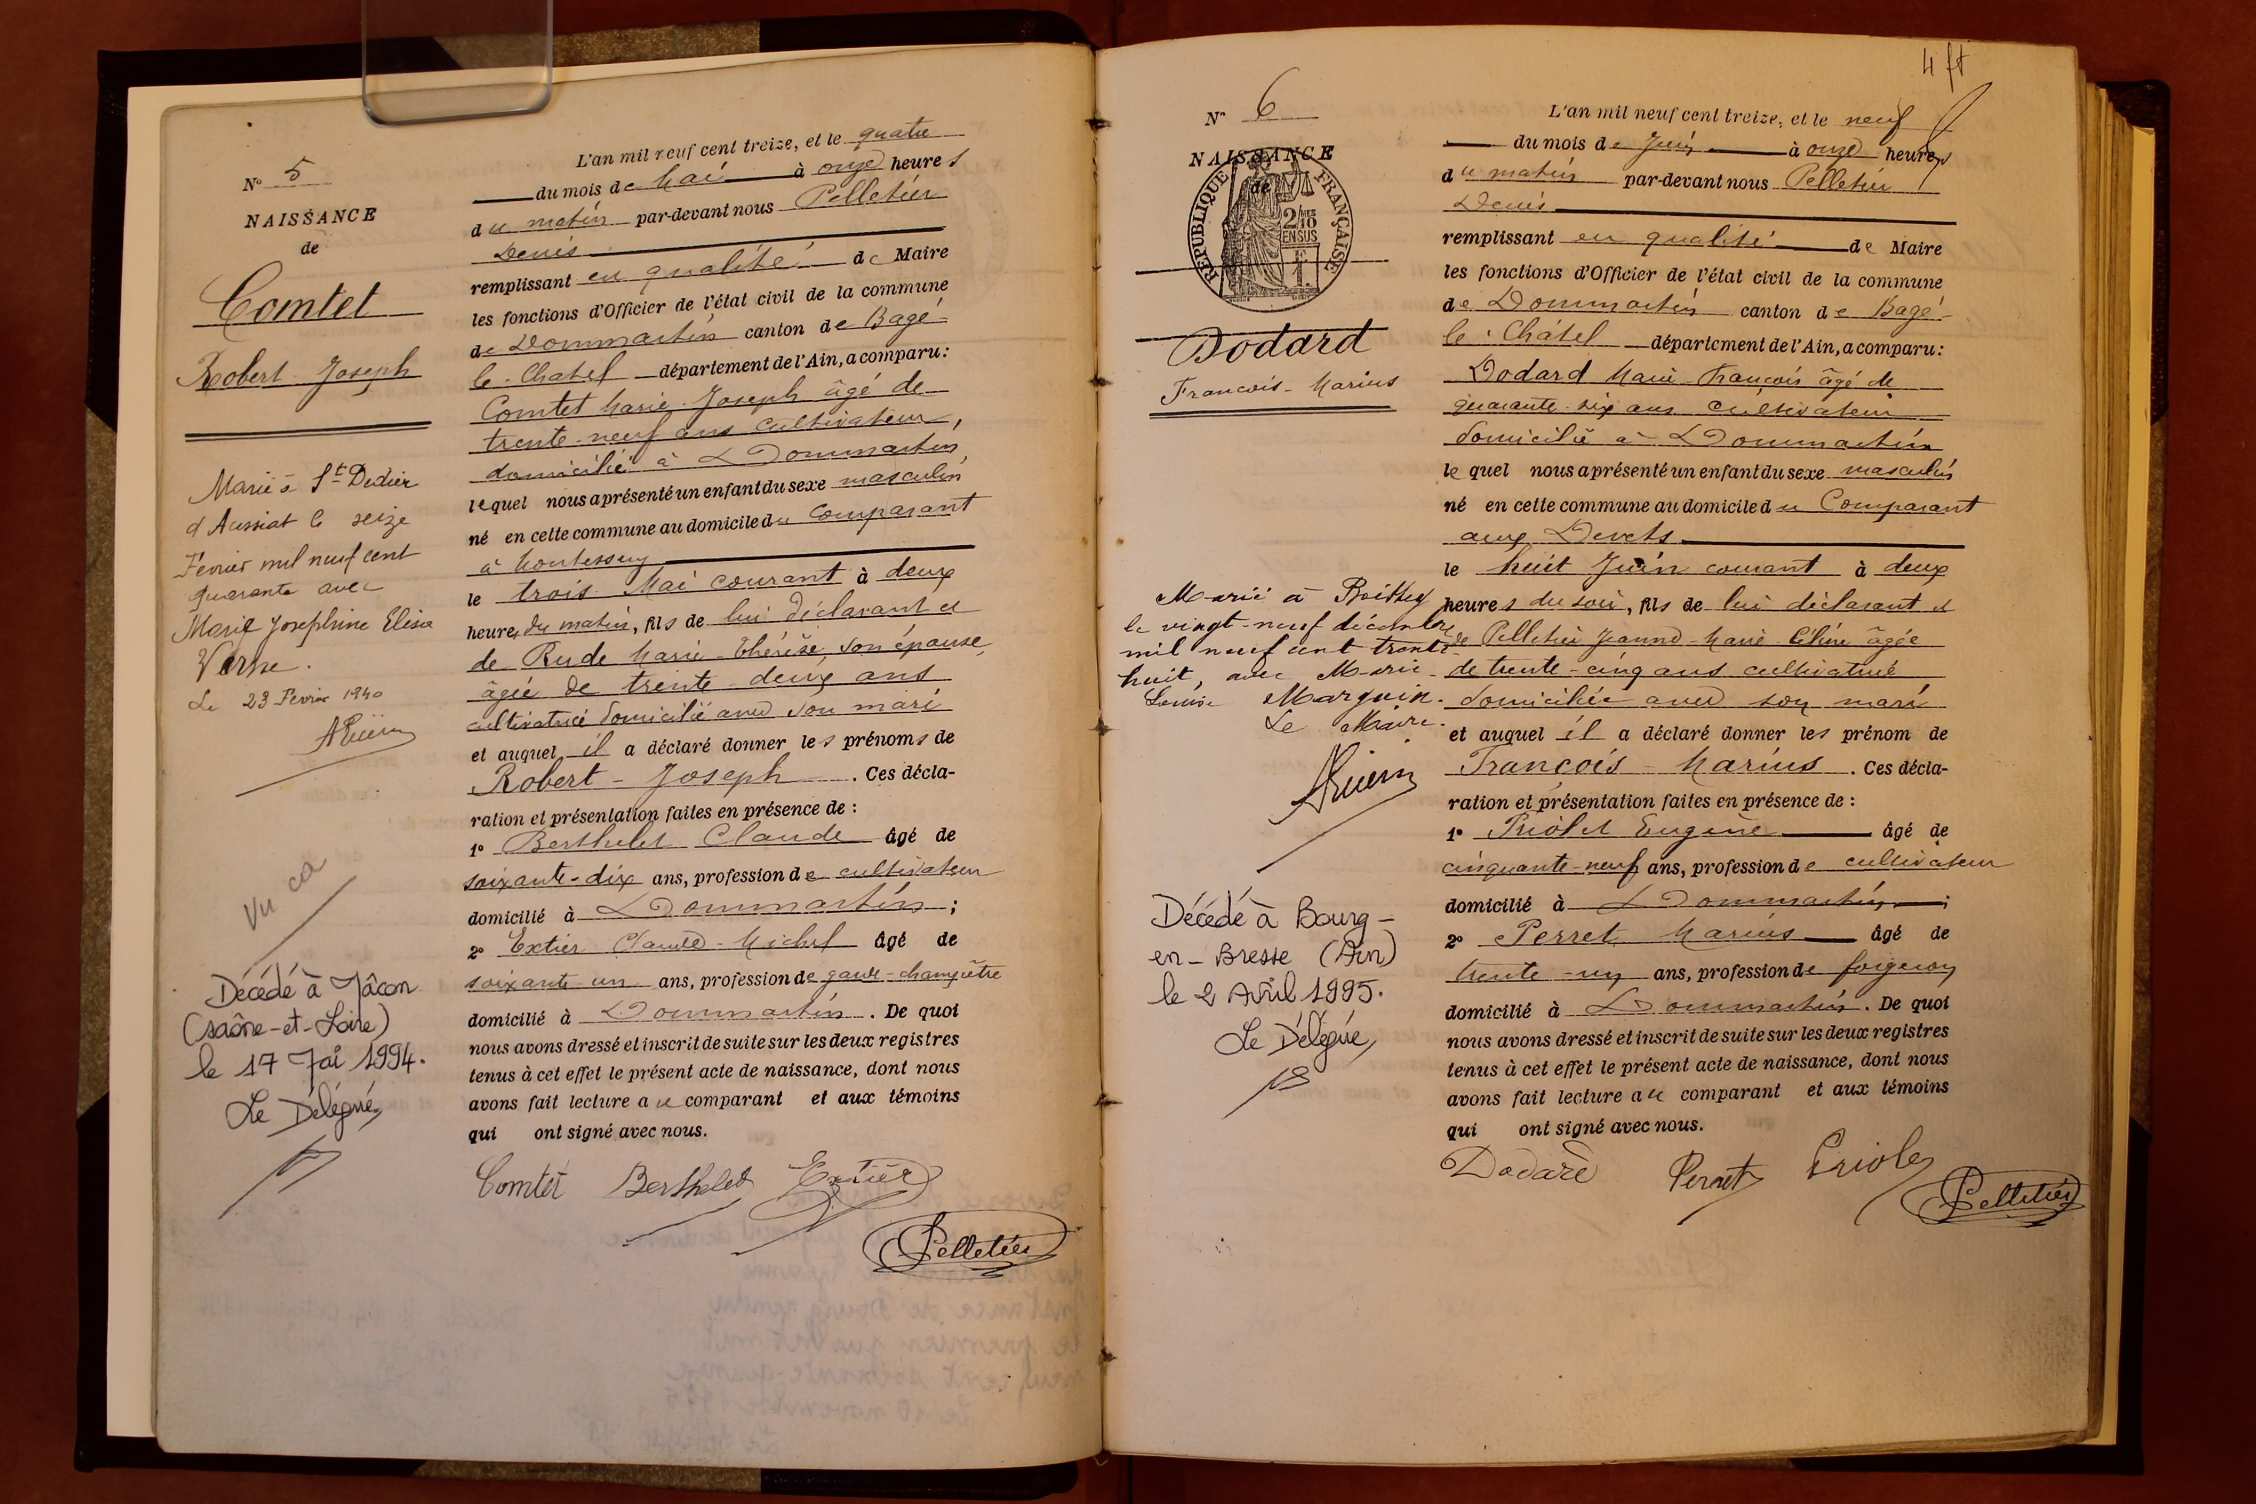 N° 5
NAISSANCE
de
Comtet
Robert Joseph
Marié à St Didier
d'Aussiat le seize
Février mil neuf cent
quarante avec
Marie Joséphine Elisa
Verne.
Le 23 Février 1940
Vu ca
Décédé à Mâcon
(Saône-et-Loire)
le 17 Mai 1994.
Le Délégué,
L'an mil neuf cent treize, et le quatre
du mois de Mai à onze heures
du matin par-devant nous Pelletier
Denis
remplissant en qualité de Maire
les fonctions d'Officier de l'état civil de la commune
de Dommartin canton de Bagé-
le-Chatel département de l'Ain, a comparu:
Comtet Marie Joseph âgé de
trente-neuf ans cultivateur,
domicilié à Dommartin,
lequel nous a présenté un enfant du sexe masculin
né en cette commune au domicile du Comparant
à Montessuy
le trois Mai courant à deux
heures du matin, fils de lui déclarant et
de Rude Marie-Thérèse son épouse,
âgée de trente-deux ans
cultivatrice domicilié avec son mari
et auquel il a déclaré donner les prénoms de
Robert-Joseph. Ces décla-
ration et présentation faites en présence de:
1° Berthelet Claude âgé de
soixante-dix ans, profession de cultivateur
domicilié à Dommartin;
2° Extier Claude-Michel âgé de
soixante un ans, profession de garde-champêtre
domicilié à Dommartin. De quoi
nous avons dressé et inscrit de suite sur les deux registres
tenus à cet effet le présent acte de naissance, dont nous
avons fait lecture au comparant et aux témoins
qui ont signé avec nous.
Comtet Berthelet Extier
Pelletier
N° 6
NAISSANCE
de
RÉPUBLIQUE FRANÇAISE
2/10
EN SUS
Dodard
François-Marius
Marié à Boissey
le vingt-neuf décembre
mil neuf cent trente-
huit, avec Marie
Louise Marguin.
Le Maire.
Décédé à Bourg-
en-Bresse (Ain)
le 2 Avril 1995.
Le Délégué,
L'an mil neuf cent treize, et le neuf
du mois de Juin à onze heures
du matin par-devant nous Pelletier
Denis
remplissant en qualité de Maire
les fonctions d'Officier de l'état civil de la commune
de Dommartin canton de Bagé-
le-Châtel département de l'Ain, a comparu:
Dodard Marie François âgé de
quarante-six ans cultivateur
domicilié à Dommartin
le quel nous a présenté un enfant du sexe masculin
né en cette commune au domicile du Comparant
aux Devets
le huit Juin courant à deux
heures du soir, fils de lui déclarant et
de Pelletier Jeanne-Marie âgée
de trente-cinq ans cultivatrice
domiciliée avec son mari
et auquel il a déclaré donner les prénom de
François-Marius. Ces décla-
ration et présentation faites en présence de:
1° Priolet Eugène âgé de
cinquante-neuf ans, profession de cultivateur
domicilié à Dommartin;
2° Perret Marius âgé de
trente-un ans, profession de forgeron
domicilié à Dommartin. De quoi
nous avons dressé et inscrit de suite sur les deux registres
tenus à cet effet le présent acte de naissance, dont nous
avons fait lecture au comparant et aux témoins
qui ont signé avec nous.
Dodard Perret Priolet
Pelletier